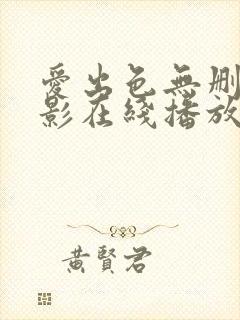 愛出色無刪
影在綫播放
黃賢君